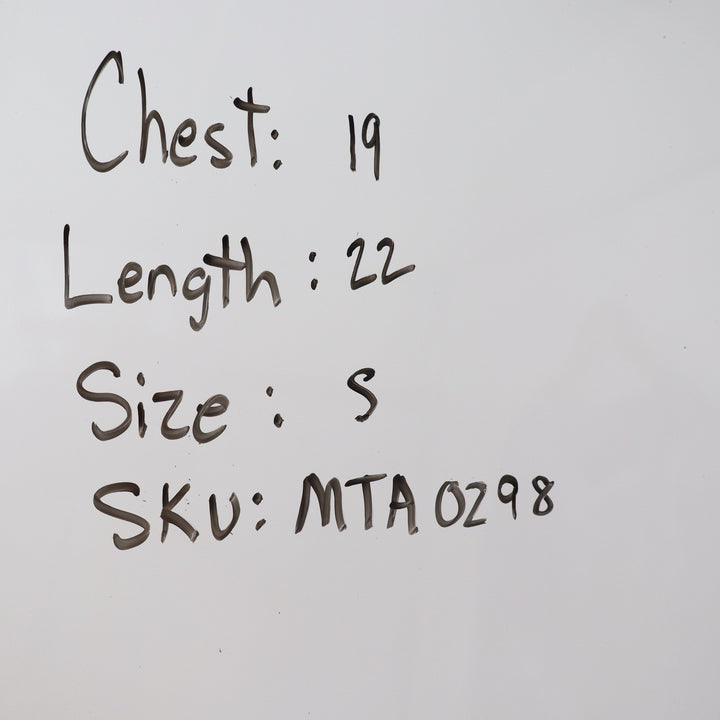 Chest: 19
Length: 22
Size: S
SKU: MTA0298